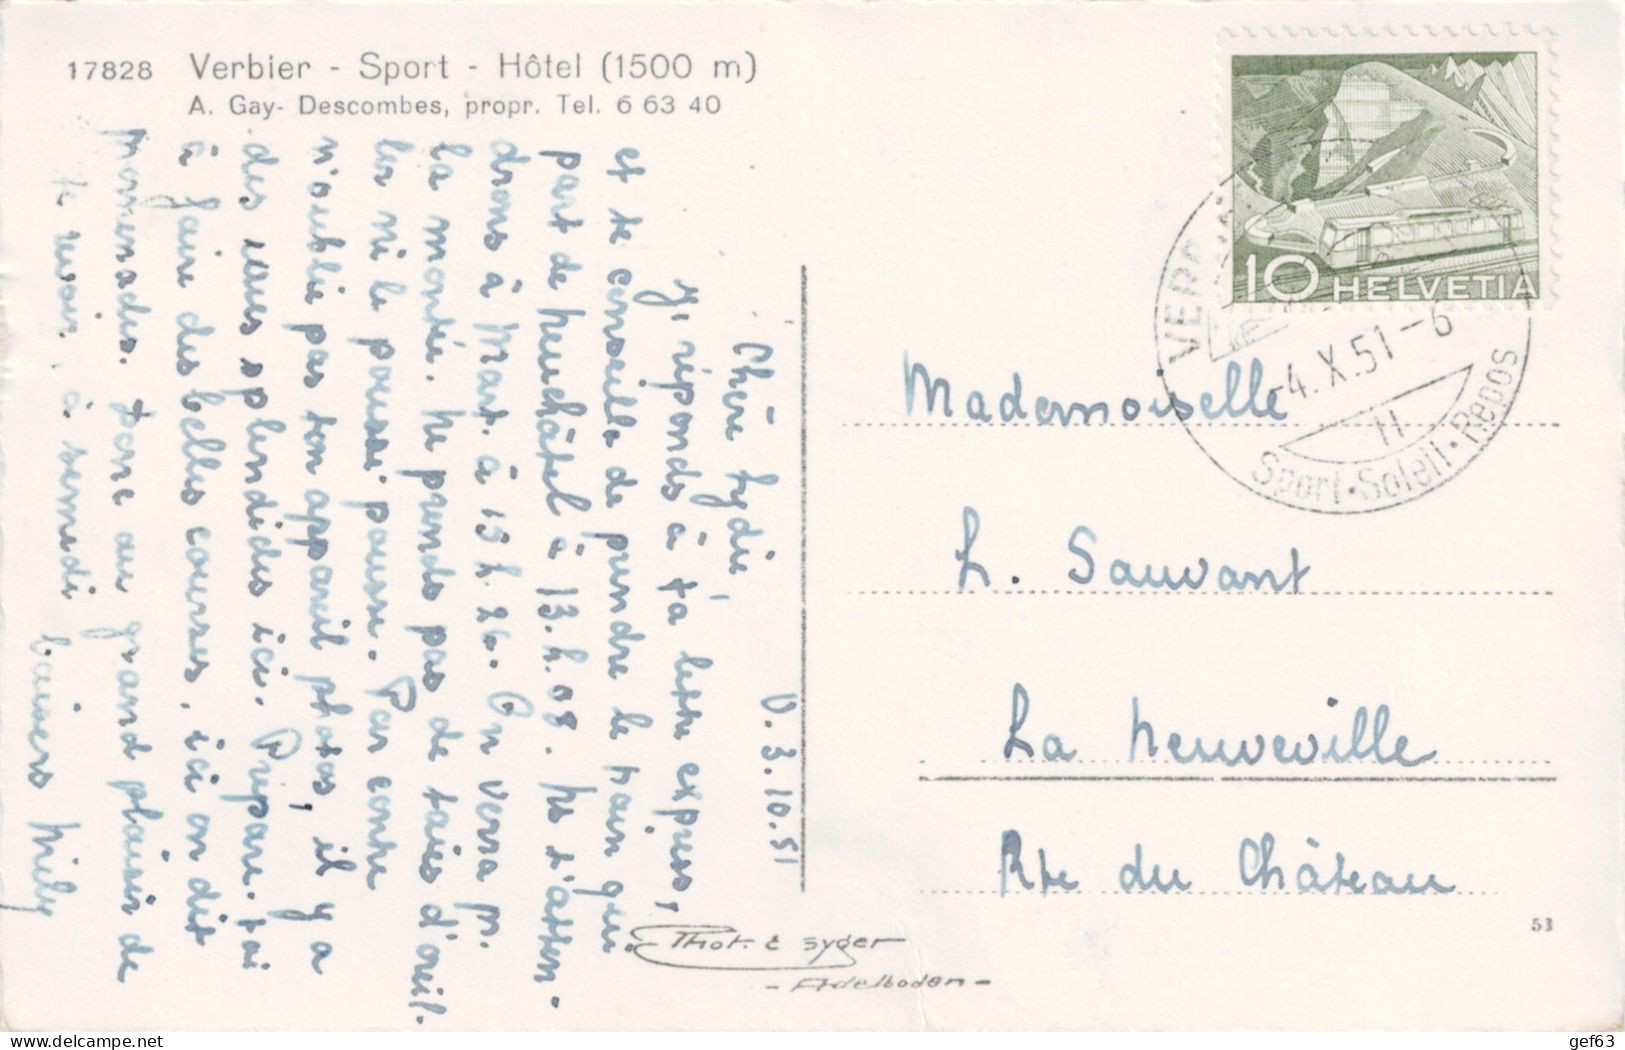 17828 Verbier - Sport - Hôtel (1500 m)
A. Gay- Descombes, propr. Tel. 6 63 40
V. 3.10.51
Chère Lydie,
J'y réponds à ta lettre express,
et te conseille de prendre le train qui
part de Neuchâtel à 13.h.08. Ns t'atten-
drons à Mart. à 15 h. 26. On verra pr.
la montée. Ne prends pas de taies d'oreil-
ler ni le poussi pousse. Par contre
n'oublie pas ton appareil photos, il y a
des vues splendides ici. Prépare-toi
à faire des belles courses, ici on dit
promenades. Donc au grand plaisir de
te revoir, à samedi baisers Miely
10 HELVETIA
VERB
-4.X.51-6
Sport·Soleil·Repos
Mademoiselle
L. Sauvant
La Neuveville
Rte du Château
53
Phot. E. Gyger
- Adelboden -
gef63